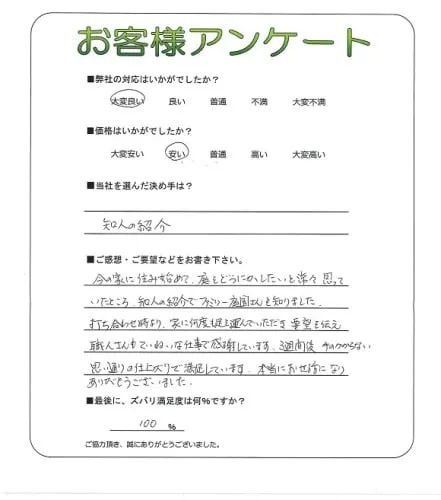 お客様アンケート
■弊社の対応はいかがでしたか?
大変良い 良い 普通 不満 大変不満
■価格はいかがでしたか?
大変安い 安い 普通 高い 大変高い
■当社を選んだ決め手は?
知人の紹介
■ご感想・ご要望などをお書き下さい。
今の家に住み始めて、庭をどうにかしたいと常々思って
いたところ、知人の紹介でファミリー庭園さんを知りました。
打ち合わせ時より、家に何度も足を運んでいただき 要望を伝え
職人さんもていねいな仕事で感謝しています。3週間後
思い通りの仕上がりで満足しています。本当にお世話になり
ありがとうございました。
■最後に、ズバリ満足度は何%ですか?
100 %
ご協力頂き、誠にありがとうございました。